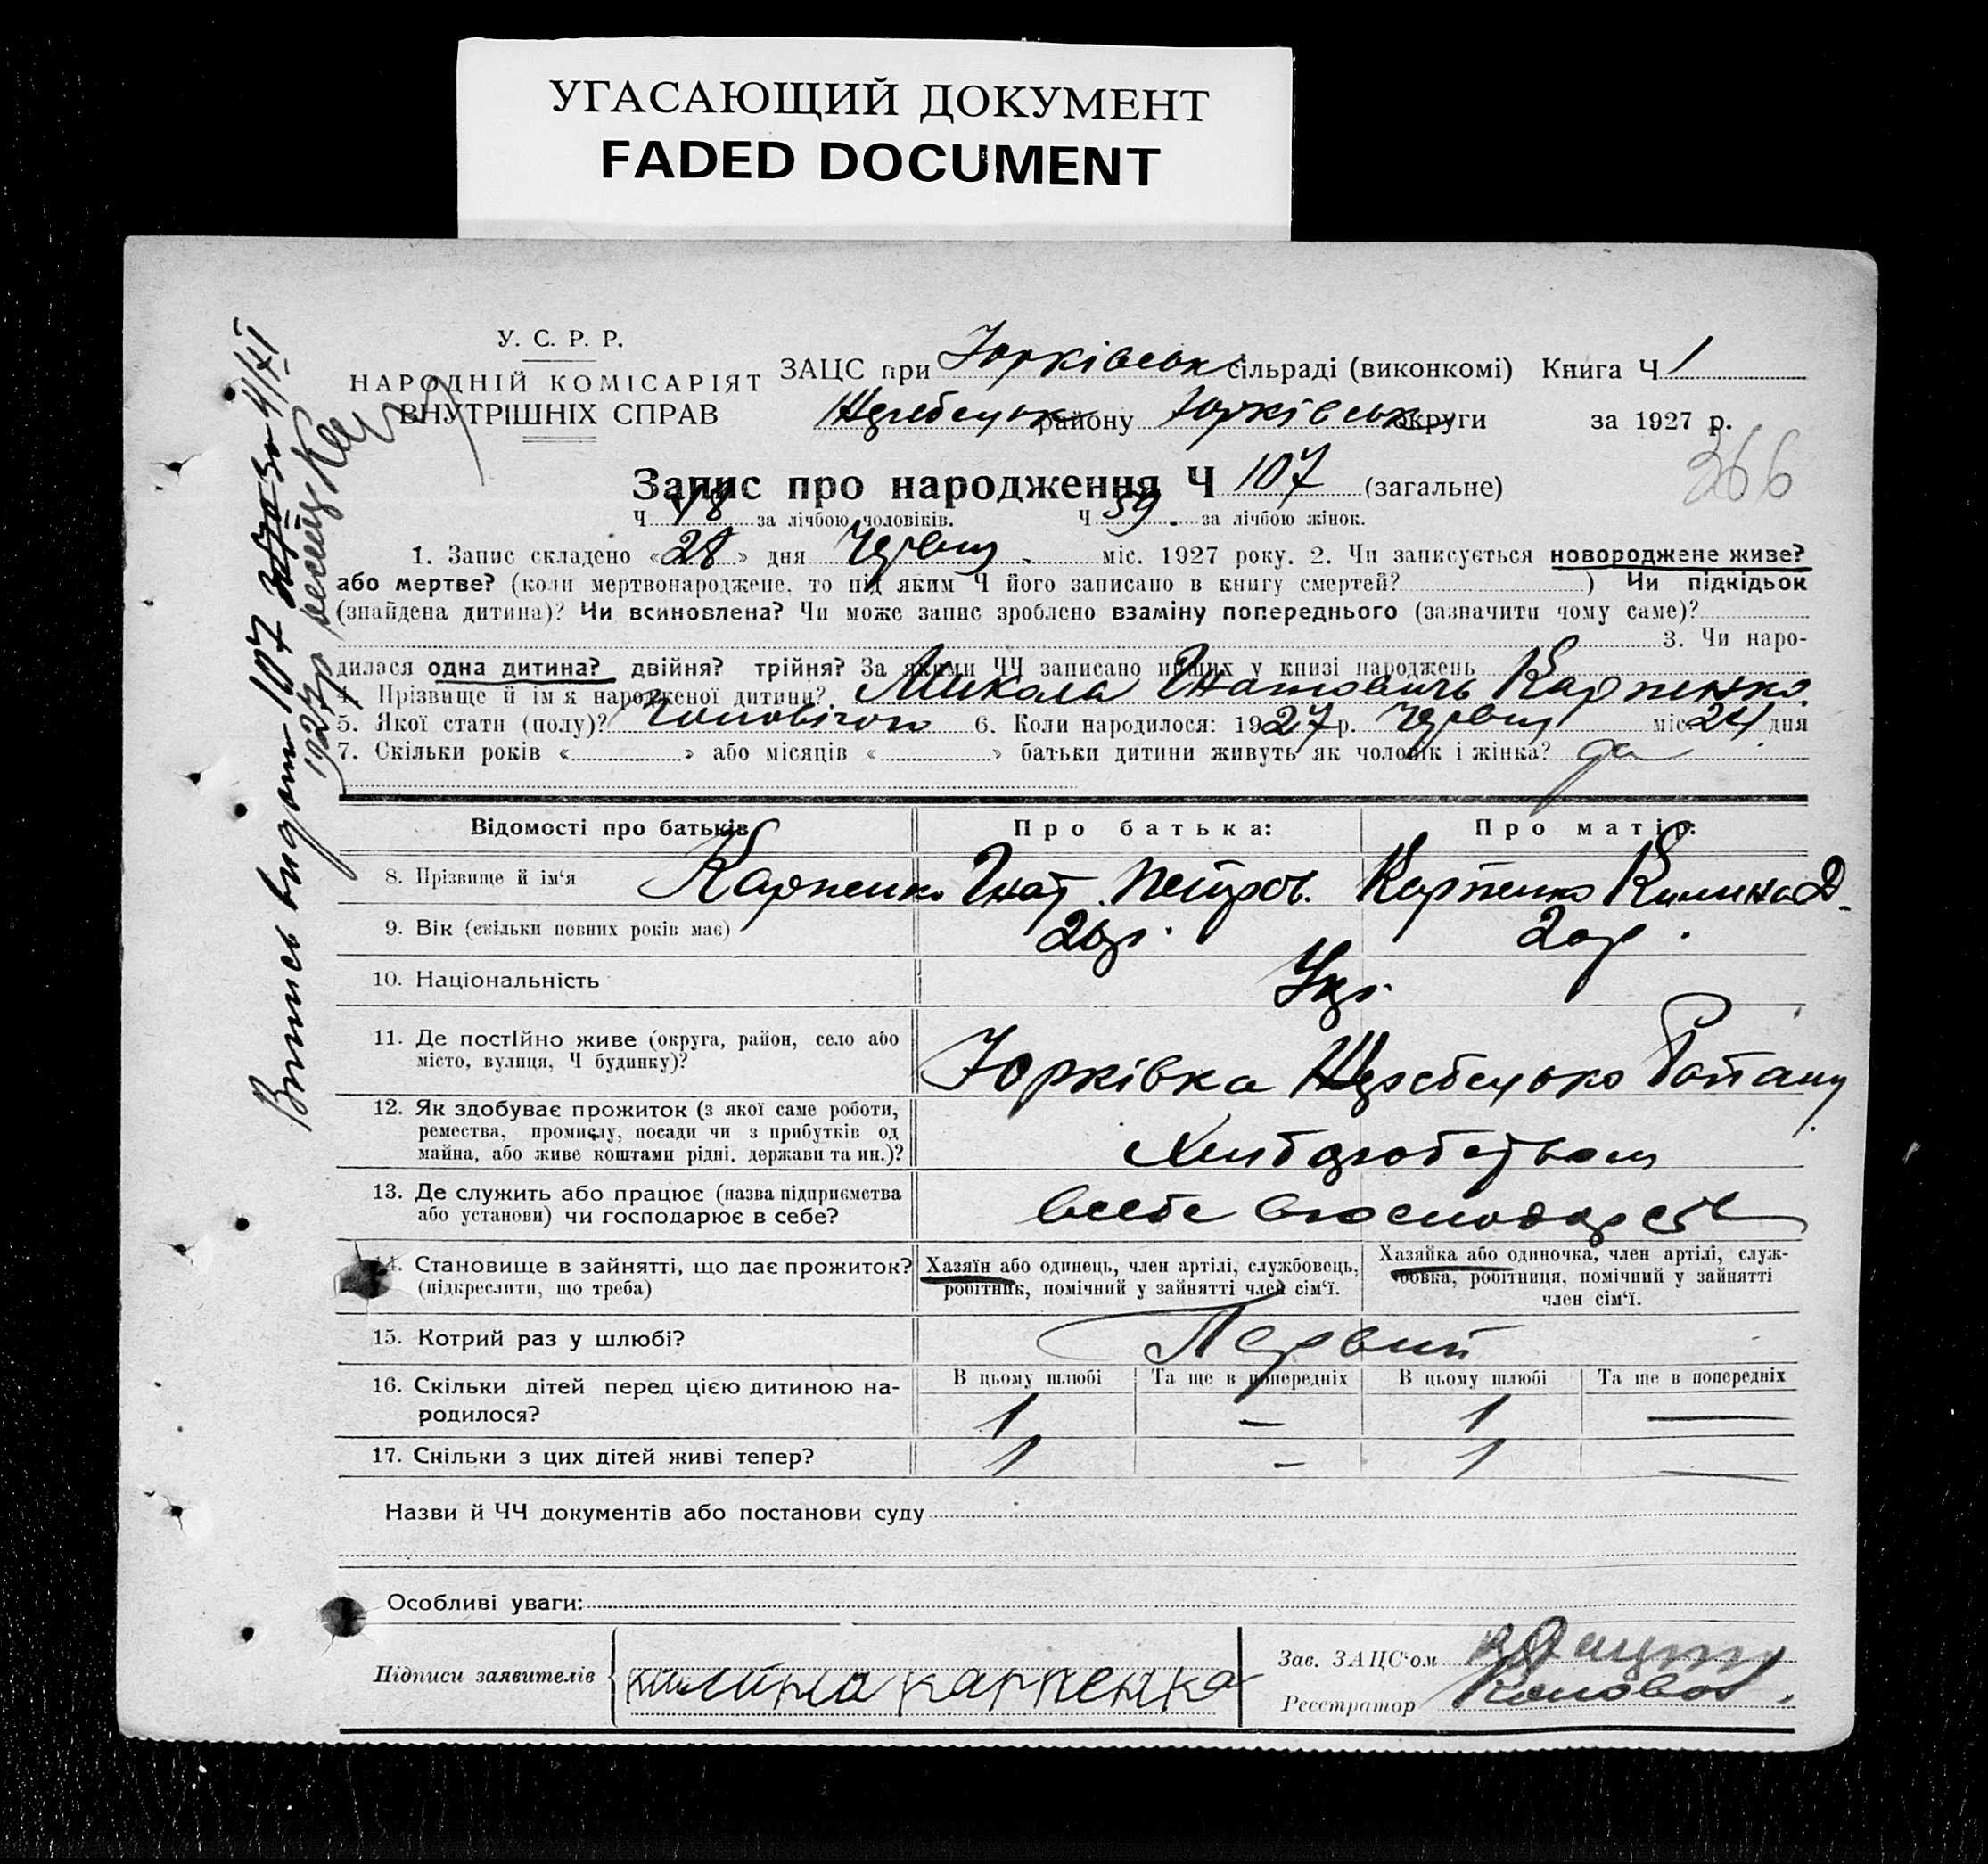 УГАСАЮЩИЙ ДОКУМЕНТ
FADED DOCUMENT
У. С. Р. Р.
НАРОДНІЙ КОМІСАРІЯТ
ВНУТРІШНІХ СПРАВ
ЗАЦС при Юрківськ сільраді (виконкомі) Книга Ч 1
району Юрківськ округи за 1927 р.
366
Запис про народження Ч 107 (загальне)
Ч 48 за лічбою чоловіків. Ч 59 за лічбою жінок.
1. Запис складено «28» дня Червня міс. 1927 року. 2. Чи записується новороджене живе?
або мертве? (коли мертвонароджене, то під яким Ч його записано в книгу смертей? ) Чи підкідьок
(знайдена дитина)? Чи всиновлена? Чи може запис зроблено взаміну попереднього (зазначити чому саме)?
3. Чи наро-
дилася одна дитина? двійня? трійня? За якими ЧЧ записано инших у книзі народжень
4. Прізвище й ім'я народженої дитини? Микола Гнатович Карпенко
5. Якої стати (полу)? Чоловічого 6. Коли народилося: 1927 р. Червня міс. 24 дня
7. Скільки років « » або місяців « » батьки дитини живуть як чоловік і жінка? да
Відомості про батьків Про батька: Про матір:
8. Прізвище й ім'я Карпенко Гнат Петров. Карпенко Килина Д.
9. Вік (скільки повних років має) 26р. 20р.
10. Національність Укр.
11. Де постійно живе (округа, район, село або
місто, вулиця, Ч будинку)?
Юрківка
12. Як здобуває прожиток (з якої саме роботи,
ремества, промислу, посади чи з прибутків од
майна, або живе коштами рідні, держави та ин.)?
Хлибаробством
13. Де служить або працює (назва підприємства
або установи) чи господарює в себе?
всебе
14. Становище в зайнятті, що дає прожиток?
(підкреслити, що треба)
Хазяїн або одинець, член артілі, службовець,
робітник, помічний у зайнятті член сім'ї.
Хазяйка або одиночка, член артілі, служ-
бовка, робітниця, помічний у зайнятті
член сім'ї.
15. Котрий раз у шлюбі? Первий
16. Скільки дітей перед цією дитиною на-
родилося?
В цьому шлюбі Та ще в попередніх В цьому шлюбі Та ще в попередніх
1 — 1 —
17. Скільки з цих дітей живі тепер? 1 — 1 —
Назви й ЧЧ документів або постанови суду
Особливі уваги:
Підписи заявителів килина карпенка
Зав. ЗАЦС'ом
Реєстратор
Випись видано 107
1927р